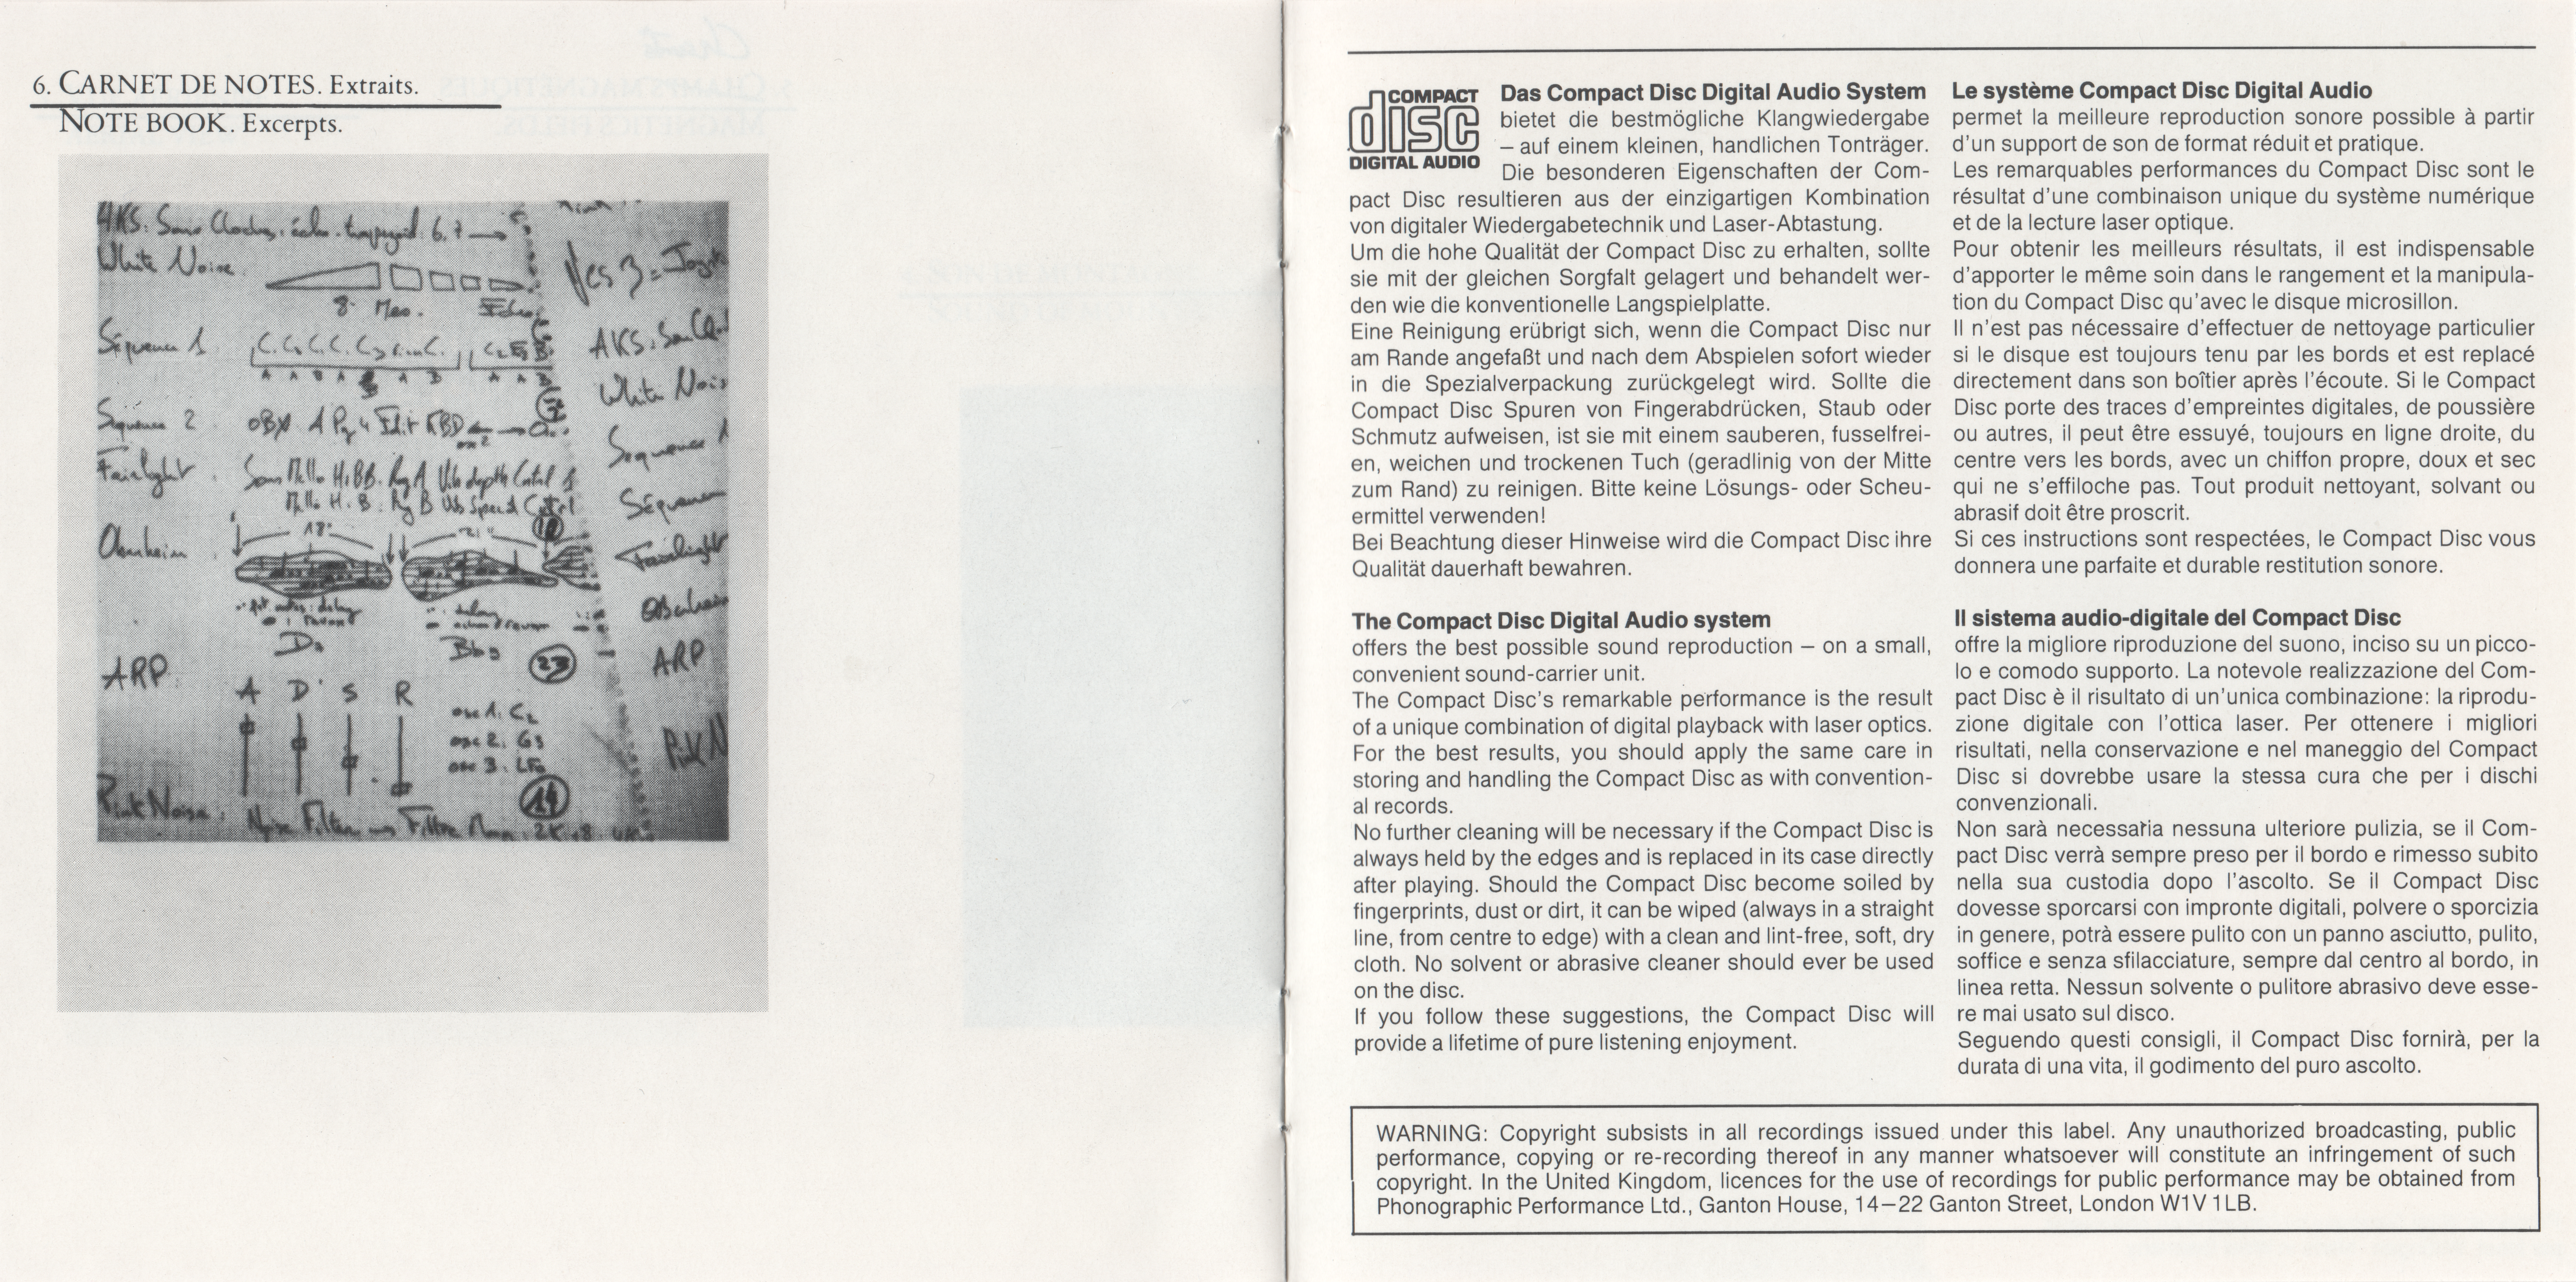 6. CARNET DE NOTES. Extraits.
NOTE BOOK. Excerpts.
AKS: Sons Cloches: écho. trapezoid: 6.7 →
White Noise
8 Mes. Echo
Séquence 1
Séquence 2 OBX A Pg 4 Edit KBD
Fairlight
Oberheim
18"
Do Bb
23
ARP
A D S R
osc 1: C2
osc 2: G3
osc 3: LFo
14
Pink Noise: Noise Filter
VCS 3 = Joyst
AKS: Son Clo
White Nois
Sequence 1
Séquence
Fairlight
Oberheim
ARP
Pink N
COMPACT
disc
DIGITAL AUDIO
Das Compact Disc Digital Audio System
bietet die bestmögliche Klangwiedergabe
– auf einem kleinen, handlichen Tonträger.
Die besonderen Eigenschaften der Com-
pact Disc resultieren aus der einzigartigen Kombination
von digitaler Wiedergabetechnik und Laser-Abtastung.
Um die hohe Qualität der Compact Disc zu erhalten, sollte
sie mit der gleichen Sorgfalt gelagert und behandelt wer-
den wie die konventionelle Langspielplatte.
Eine Reinigung erübrigt sich, wenn die Compact Disc nur
am Rande angefaßt und nach dem Abspielen sofort wieder
in die Spezialverpackung zurückgelegt wird. Sollte die
Compact Disc Spuren von Fingerabdrücken, Staub oder
Schmutz aufweisen, ist sie mit einem sauberen, fusselfrei-
en, weichen und trockenen Tuch (geradlinig von der Mitte
zum Rand) zu reinigen. Bitte keine Lösungs- oder Scheu-
ermittel verwenden!
Bei Beachtung dieser Hinweise wird die Compact Disc ihre
Qualität dauerhaft bewahren.
The Compact Disc Digital Audio system
offers the best possible sound reproduction – on a small,
convenient sound-carrier unit.
The Compact Disc's remarkable performance is the result
of a unique combination of digital playback with laser optics.
For the best results, you should apply the same care in
storing and handling the Compact Disc as with convention-
al records.
No further cleaning will be necessary if the Compact Disc is
always held by the edges and is replaced in its case directly
after playing. Should the Compact Disc become soiled by
fingerprints, dust or dirt, it can be wiped (always in a straight
line, from centre to edge) with a clean and lint-free, soft, dry
cloth. No solvent or abrasive cleaner should ever be used
on the disc.
If you follow these suggestions, the Compact Disc will
provide a lifetime of pure listening enjoyment.
Le système Compact Disc Digital Audio
permet la meilleure reproduction sonore possible à partir
d'un support de son de format réduit et pratique.
Les remarquables performances du Compact Disc sont le
résultat d'une combinaison unique du système numérique
et de la lecture laser optique.
Pour obtenir les meilleurs résultats, il est indispensable
d'apporter le même soin dans le rangement et la manipula-
tion du Compact Disc qu'avec le disque microsillon.
Il n'est pas nécessaire d'effectuer de nettoyage particulier
si le disque est toujours tenu par les bords et est replacé
directement dans son boîtier après l'écoute. Si le Compact
Disc porte des traces d'empreintes digitales, de poussière
ou autres, il peut être essuyé, toujours en ligne droite, du
centre vers les bords, avec un chiffon propre, doux et sec
qui ne s'effiloche pas. Tout produit nettoyant, solvant ou
abrasif doit être proscrit.
Si ces instructions sont respectées, le Compact Disc vous
donnera une parfaite et durable restitution sonore.
Il sistema audio-digitale del Compact Disc
offre la migliore riproduzione del suono, inciso su un picco-
lo e comodo supporto. La notevole realizzazione del Com-
pact Disc è il risultato di un'unica combinazione: la riprodu-
zione digitale con l'ottica laser. Per ottenere i migliori
risultati, nella conservazione e nel maneggio del Compact
Disc si dovrebbe usare la stessa cura che per i dischi
convenzionali.
Non sarà necessaria nessuna ulteriore pulizia, se il Com-
pact Disc verrà sempre preso per il bordo e rimesso subito
nella sua custodia dopo l'ascolto. Se il Compact Disc
dovesse sporcarsi con impronte digitali, polvere o sporcizia
in genere, potrà essere pulito con un panno asciutto, pulito,
soffice e senza sfilacciature, sempre dal centro al bordo, in
linea retta. Nessun solvente o pulitore abrasivo deve esse-
re mai usato sul disco.
Seguendo questi consigli, il Compact Disc fornirà, per la
durata di una vita, il godimento del puro ascolto.
WARNING: Copyright subsists in all recordings issued under this label. Any unauthorized broadcasting, public
performance, copying or re-recording thereof in any manner whatsoever will constitute an infringement of such
copyright. In the United Kingdom, licences for the use of recordings for public performance may be obtained from
Phonographic Performance Ltd., Ganton House, 14–22 Ganton Street, London W1V 1LB.